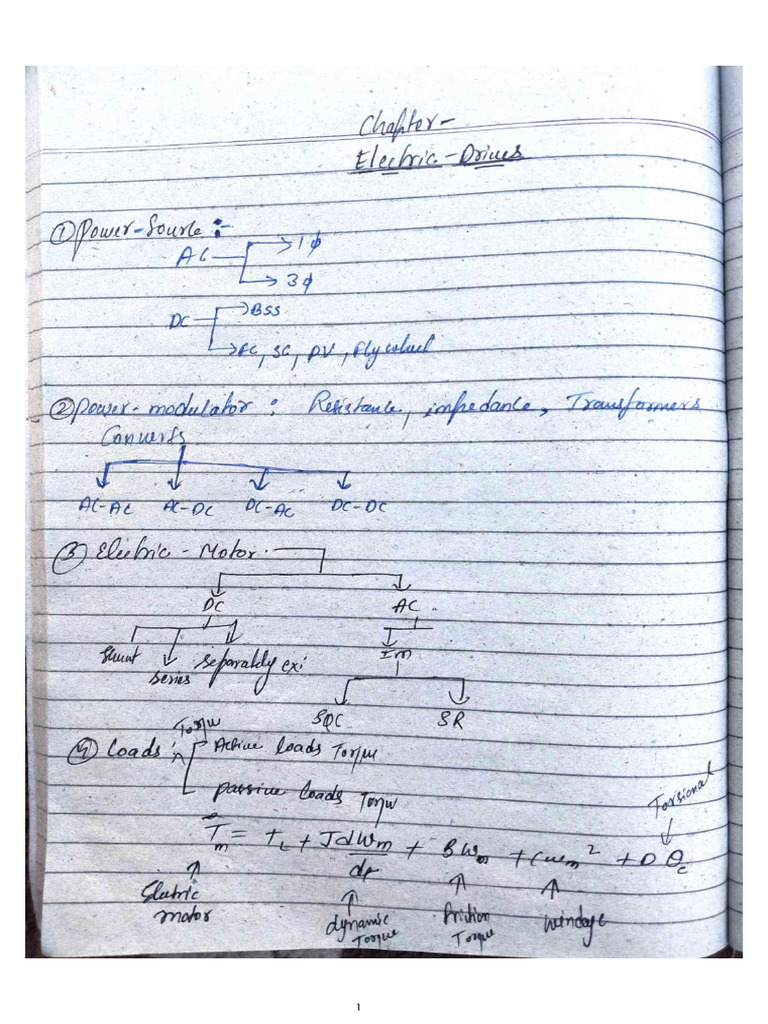 Chapter-
Electric-Drives
① Power-Source :-
AC → 1ϕ
→ 3ϕ
DC → BSS
→ FC, SC, PV, Flywheel
② Power-modulator : Resistance, impedance, Transformers
Converts
AC-AC AC-DC DC-AC DC-DC
③ Electric - Motor.
DC AC.
Shunt series separably exi IM
SQC SR
Torqu
④ Loads: Active loads Torque
passive loads Torqu
Torsional
T_m = T_L + J dWm/dt + BWm + Cωm² + D θc
Eletric motor
dynamic Torque
friction Torque
windage
1